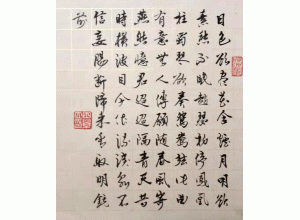 日色欲盡花含煙月明欲
素愁不眠趙瑟初停鳳凰
柱蜀琴欲奏鴛鴦弦此曲
有意無人傳願隨春風寄
燕然憶君迢迢隔青天昔
時橫波目今作流淚泉不
信妾腸斷歸來看取明鏡
前